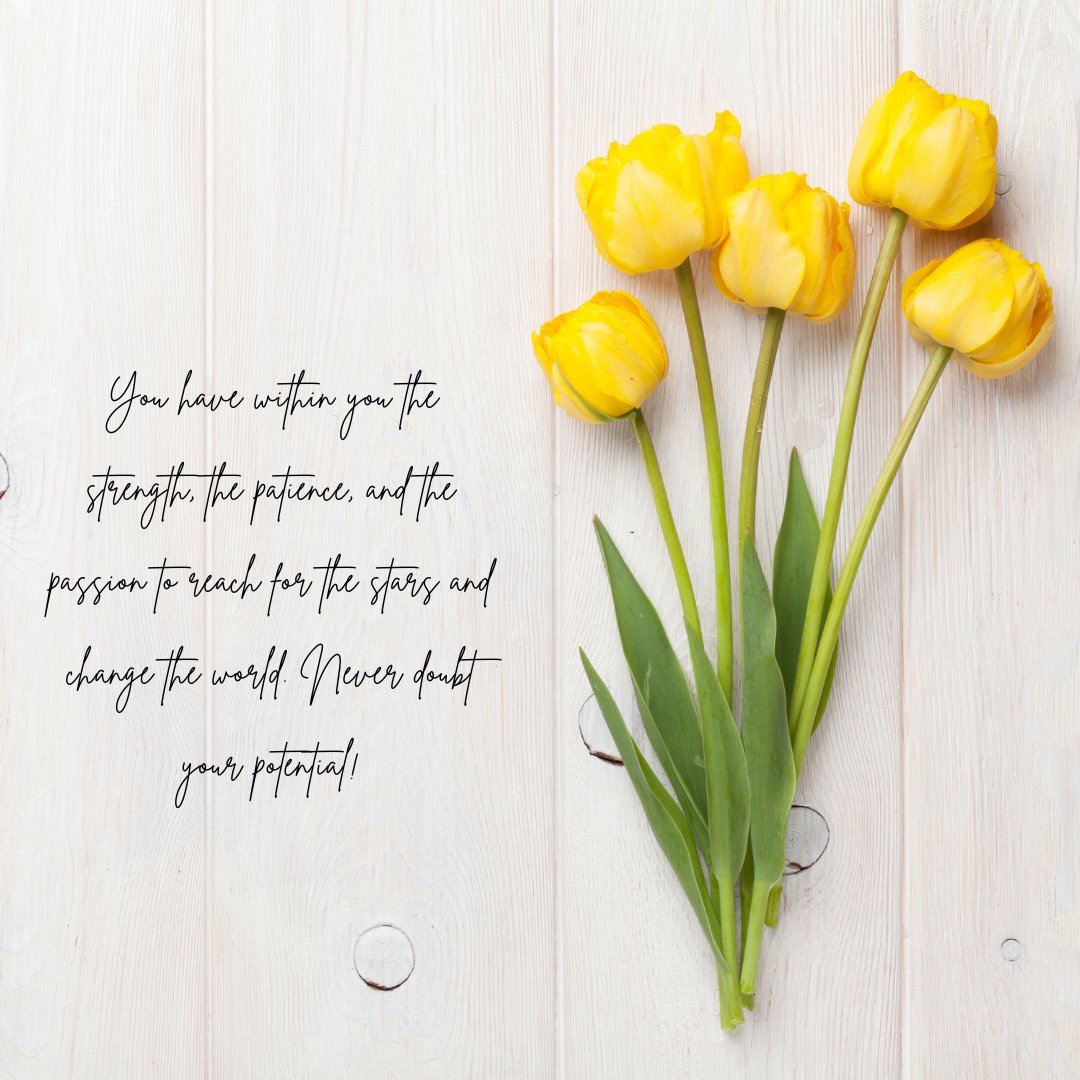 You have within you the
strength, the patience, and the
passion to reach for the stars and
change the world. Never doubt
your potential!